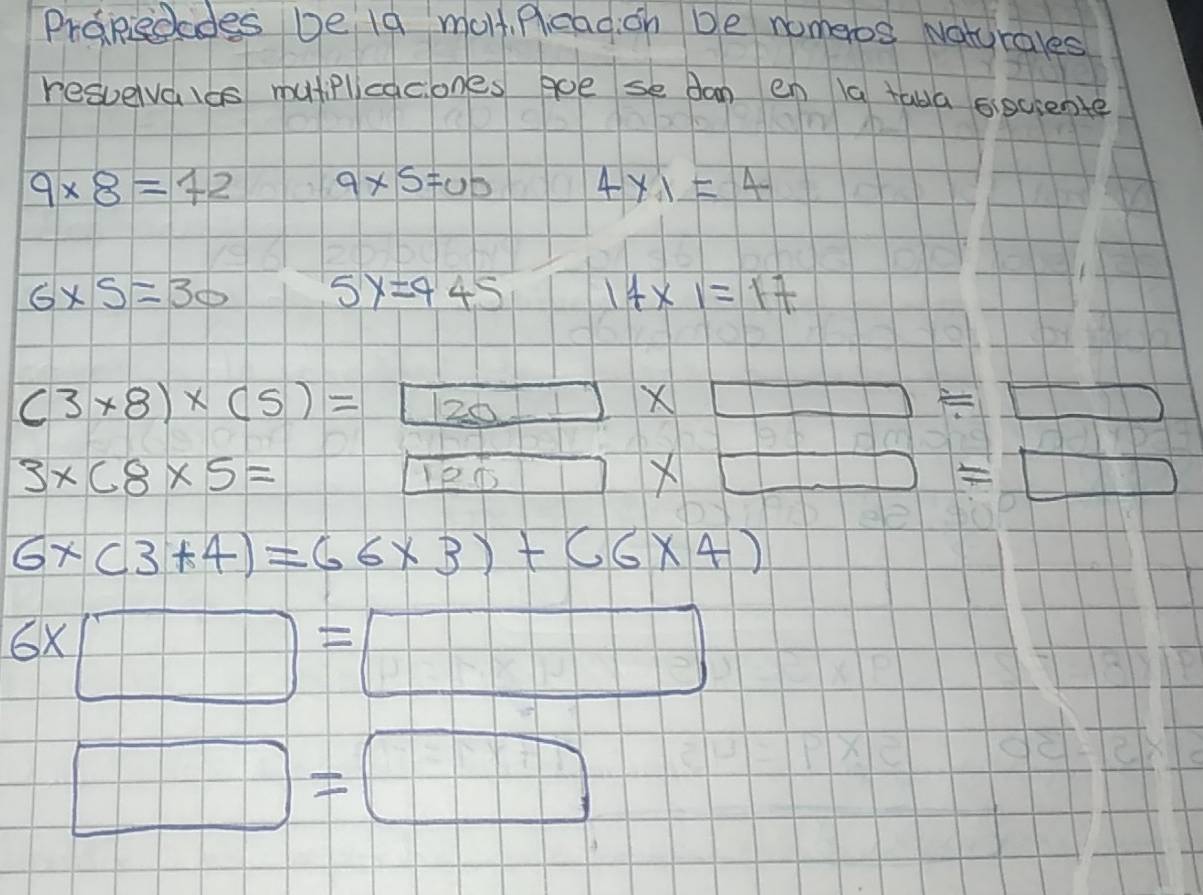 Propiedades De la multiplicación De números Naturales
resuelva las mutiplicaciones que se dan en la tabla siguiente
9 × 8 = 72 9 × 5 = 45 4 × 1 = 4
6 × 5 = 30 5 × = 9 45 17 × 1 = 17
(3 × 8) × (5) = 120 × =
3 × (8 × 5 = 120 × =
6 × (3 + 4) = (6 × 3) + (6 × 4)
6 × =
=